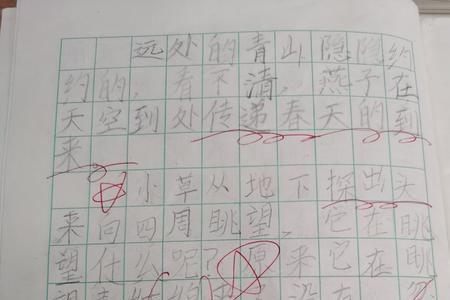 远处的青山隐隐约
约的，看不清，燕子在
天空到处传递春天的到
来
小草从地下探出头
来向四周眺望，它在眺
望什么呢？原来它在眺
望春